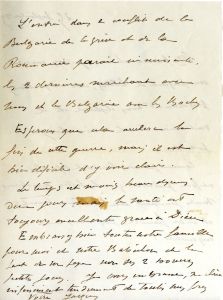 L'entrée dans le conflit de la
Bulgarie de la Grèce et de la
Roumanie paraît imminente
les 2 dernières marchant avec
nous et la Bulgarie avec les Boches
Espérons que cela avancera la
fin de cette guerre, mais il est
bien difficile d'y voir clair.
Le temps est moins beau depuis
deux jours la santé est
toujours excellente grâce à Dieu
Embrasse bien toute notre famille
pour moi et notre
et de son papa
petits pour Je vous embrasse, ma chérie
tendrement de toutes mes forces
Votre Jacques